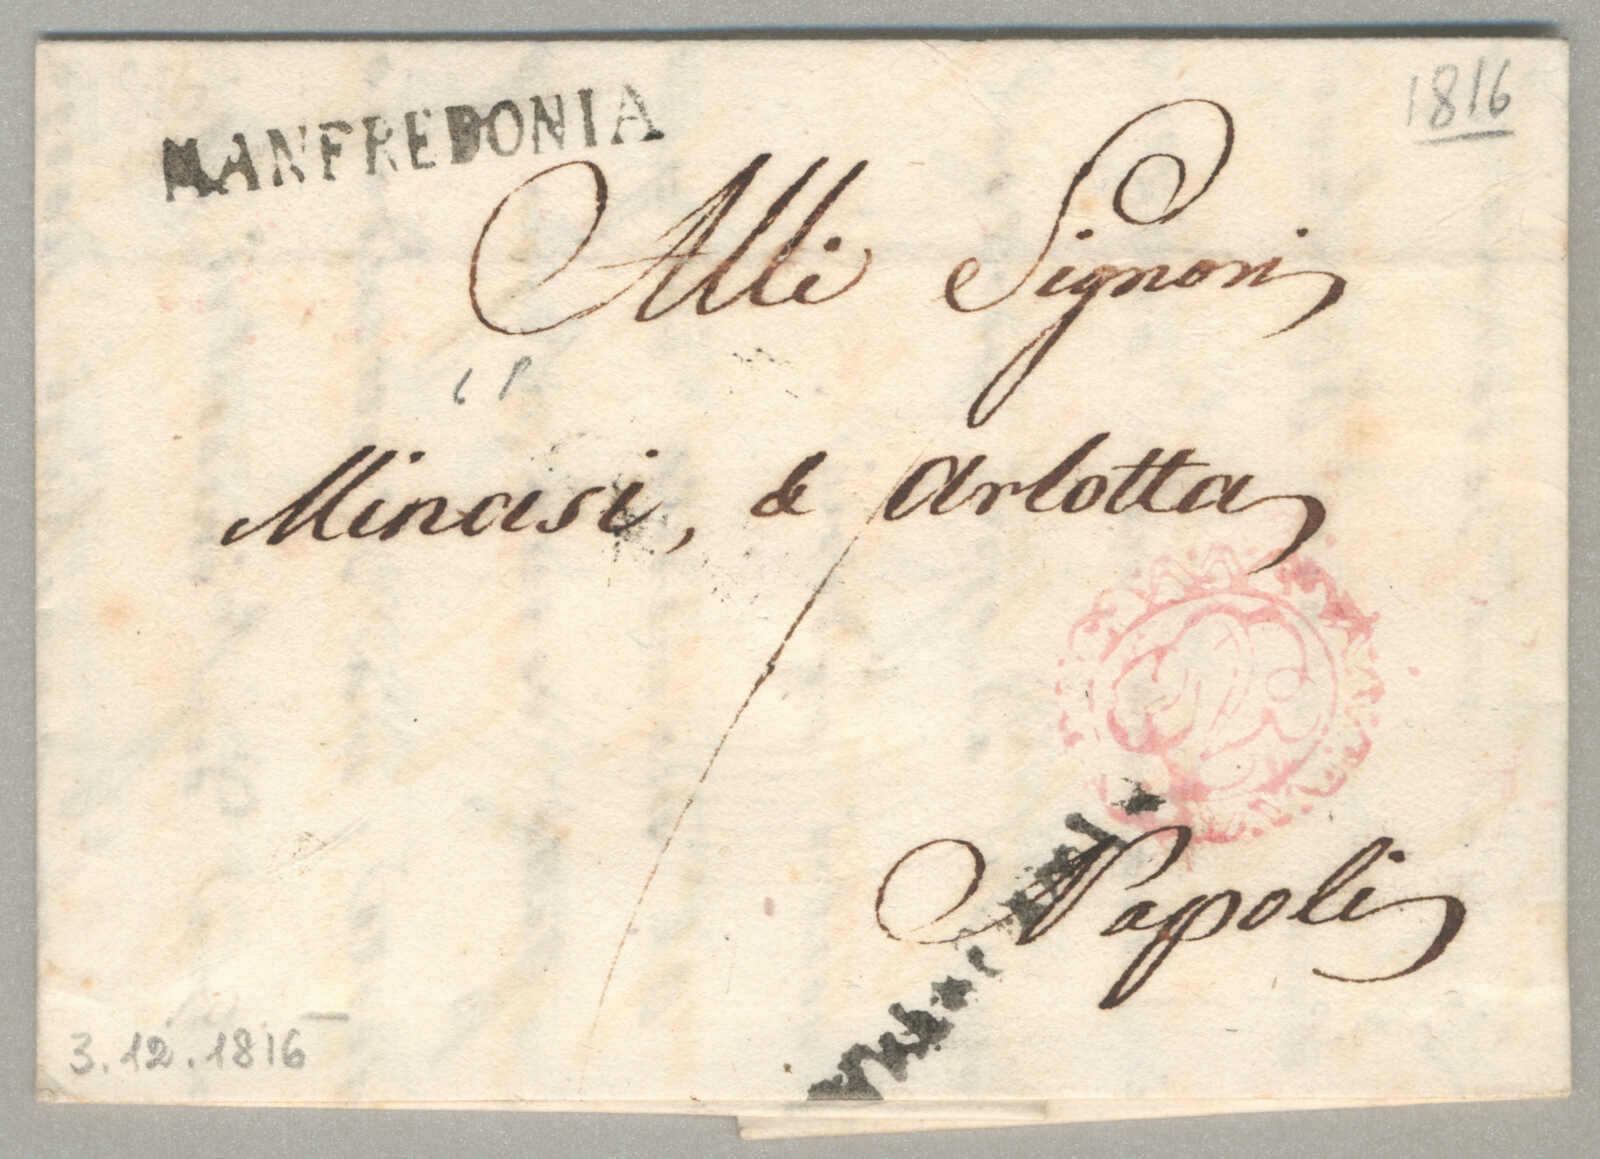 1816
MANFREDONIA
Alli Signori
Minasi, & Arlotta
Napoli
3.12.1816